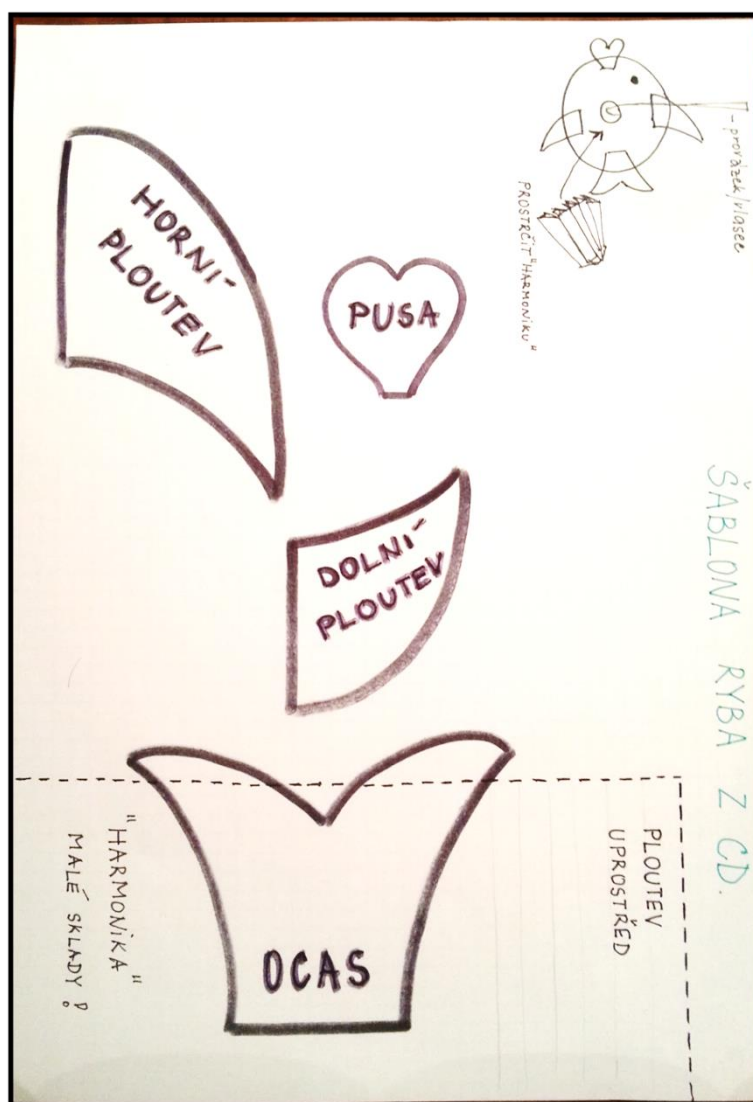 ŠABLONA RYBA Z CD.
- provázek/vlasec
PROSTRČIT "HARMONIKU"
HORNÍ
PLOUTEV
PUSA
DOLNÍ
PLOUTEV
PLOUTEV
UPROSTŘED
OCAS
"HARMONIKA"
MALÉ SKLADY!